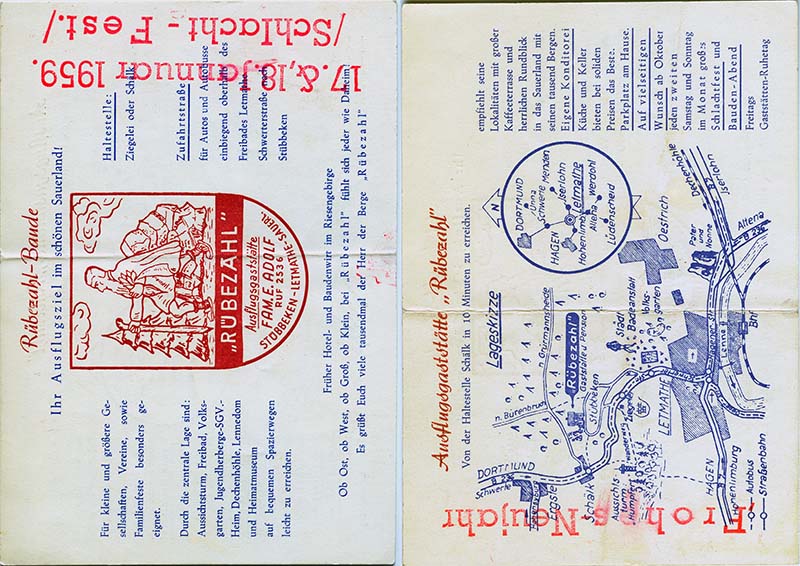 17.&,18.Januar 1959.
/Schlacht - Fest./
Rübezahl-Baude
Ihr Ausflugsziel im schönen Sauerland!
Für kleine und größere Ge-
sellschaften, Vereine, sowie
Familienfeste besonders ge-
eignet.
Durch die zentrale Lage sind:
Aussichtsturm, Freibad, Volks-
garten, Jugendherberge-SGV.-
Heim, Dechenhöhle, Lennedom
und Heimatmuseum
auf bequemen Spazierwegen
leicht zu erreichen.
„RÜBEZAHL"
Ausflugsgaststätte
FAM. E. ADOLF
RUF 2336
STÜBBEKEN-LETMATHE-SAUERL.
Haltestelle:
Ziegelei oder Schälk
Zufahrtstraße
für Autos und Autobusse
einbiegend oberhalb des
Freibades Letmathe
Schwerterstraße nach
Stübbeken
Früher Hotel und Baudenwirt im Riesengebirge
Ob Ost, ob West, ob Groß, ob Klein, bei „Rübezahl" fühlt sich jeder wie Daheim!
Es grüßt Euch viele tausendmal der Herr der Berge „Rübezahl"
Frohes Neujahr
Ausflugsgaststätte „Rübezahl"
Von der Haltestelle Schälk in 10 Minuten zu erreichen.
Lageskizze
DORTMUND
B 236
Schwerte
Ergste
Schälk
n. Bürenbruch
n. Grürmannsheide
„Rübezahl"
Gaststätte u. Pension
Stübbeken
Städt.
Badeanstalt
Volks-
garten
Aussichts-
turm
Humpfert
LETMATHE
Oestrich
Pater
und
Nonne
Dechenhöhle
B 7
Iserlohn
Altena
B 236
Lenne
Bhf
HAGEN
Hohenlimburg
Autobus
Straßenbahn
N
DORTMUND
Unna
Schwerte
Menden
HAGEN
Iserlohn
Hohenlimb.
Letmathe
Altena
Werdohl
Lüdenscheid
empfiehlt seine
Lokalitäten mit großer
Kaffeeterrasse und
herrlichen Rundblick
in das Sauerland mit
seinen tausend Bergen.
Eigene Konditorei
Küche und Keller
bieten bei soliden
Preisen das Beste.
Parkplatz am Hause.
Auf vielseitigen
Wunsch ab Oktober
jeden zweiten
Samstag und Sonntag
im Monat großes
Schlachtfest und
Bauden-Abend
Freitags
Gaststätten-Ruhetag